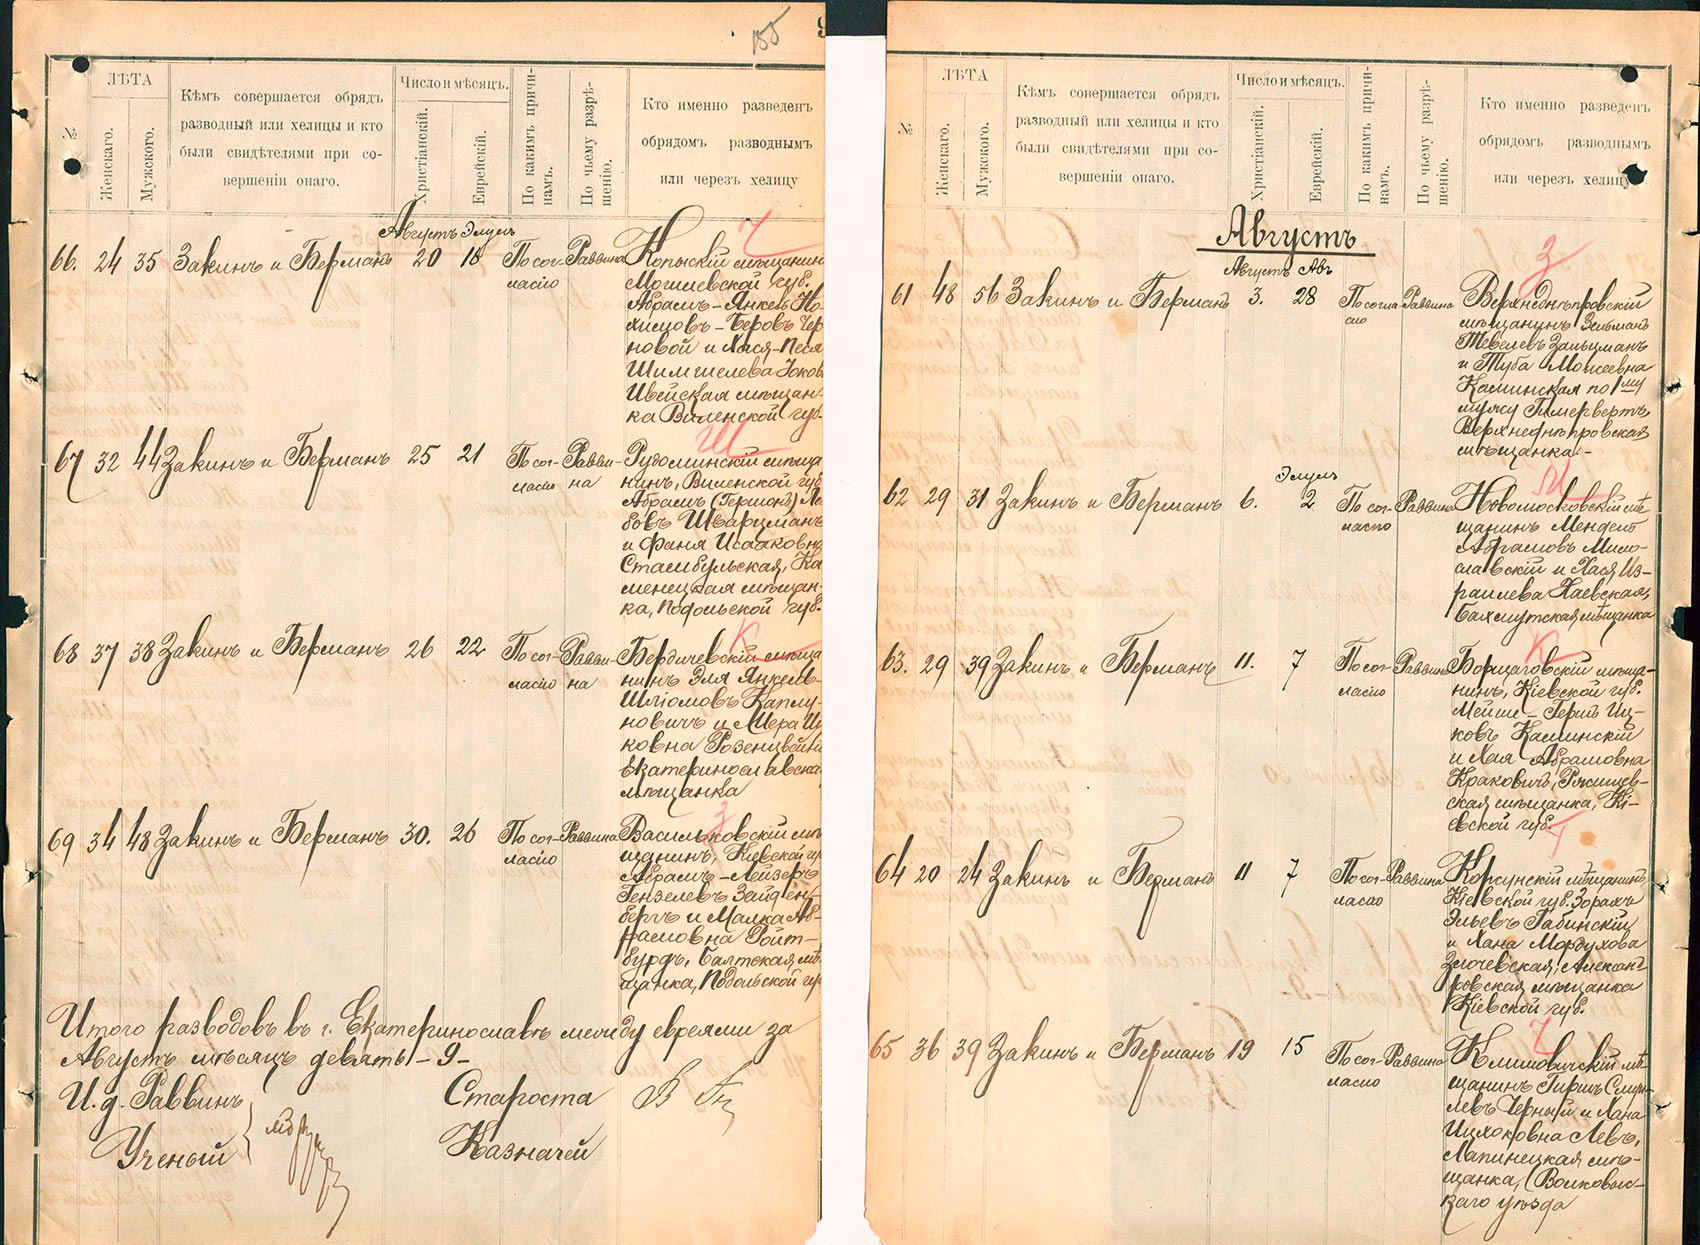 155
№
ЛѢТА
Женскаго.
Мужского.
Кѣмъ совершается обрядъ
разводный или хелицы и кто
были свидѣтелями при со-
вершеніи онаго.
Число и мѣсяцъ.
Христіанскій.
Еврейскій.
По какимъ причи-
намъ.
По чьему разрѣ-
шенію.
Кто именно разведенъ
обрядомъ разводнымъ
или черезъ хелицу
Августъ Элулъ
66. 24 35 Закинъ и Берманъ 20 18 По сог- Раввина
ласію
Копысскій мѣщанин
Могилевской губ.
Абрамъ-Янкель Но
химовъ-Беровъ Чер
новой и Хася-Песя
Шимшелева Іохов
Швейская мѣщан-
ка Виленской губ.
67 32 44 Закинъ и Берманъ 25 21 По сог- Равви-
ласію на
Рудоминскій мѣща
нинъ, Виленской губ
Абрамъ (Гершонъ) Ле
бовъ Шварцманъ
и Фаня Исааковна
Стамбульская, Ка
менецкая мѣщан-
ка, Подольской губ.
68 37 38 Закинъ и Берманъ 26 22 По сог- Равви-
ласію на
Бердичевскій мѣща
нинъ Эля Янкель-
Шліомовъ Каплу-
новичъ и Мера Иц
ковна Розенцвейг
Екатеринославска
мѣщанка
69 34 48 Закинъ и Берманъ 30. 26 По сог- Раввина
ласію
Васильковскій мѣ
щанинъ, Кіевской гу
Абрамъ-Лейзеръ
Гензелевъ Зайден
бергъ и Малка Аб-
рамовна Ройт-
бурдъ, Балтская мѣ
щанка, Подольской гу
Итого разводовъ въ г. Екатеринославѣ между евреями за
Августъ мѣсяцъ девять -9-
И. д. Раввинъ Староста
Ученый Казначей
№
ЛѢТА
Женскаго.
Мужского.
Кѣмъ совершается обрядъ
разводный или хелицы и кто
были свидѣтелями при со-
вершеніи онаго.
Число и мѣсяцъ.
Христіанскій.
Еврейскій.
По какимъ причи-
намъ.
По чьему разрѣ-
шенію.
Кто именно разведенъ
обрядомъ разводнымъ
или черезъ хелицу
Августъ
Августъ Авъ
61 48 56 Закинъ и Берманъ 3. 28 По согла- Раввина
сію
Верхнеднѣпровскій
мѣщанинъ Зельманъ
Тевелевъ Зальцманъ
и Туба Моисеевна
Каминская по 1му
мужу Гимервертъ
Верхнеднѣпровская
мѣщанка.-
Элулъ
62 29 31 Закинъ и Берманъ 6. 2 По сог- Раввина
ласію
Новомосковскій мѣ
щанинъ Мендель
Абрамовъ Мило-
славскій и Хася Из-
раилева Хаевская,
Бахмутская мѣщанка
63. 29 39 Закинъ и Берманъ 11. 7 По сог- Раввина
ласію
Борщаговскій мѣща-
нинъ, Кіевской губ.
Мейши-Герш Иц-
ковъ Каминскій
и Хая Абрамовна
Краковичъ, Ржищев-
ская мѣщанка, Кі-
евской губ.
64 20 24 Закинъ и Берманъ 11 7 По сог- Раввина
ласію
Корсунскій мѣщанинъ
Кіевской губ. Зорахъ
Эльевъ Габинскій
и Хана Мордухова
Злочевская, Александ
ровская мѣщанка
Кіевской губ.
65 36 39 Закинъ и Берманъ 19 15 По сог- Раввина
ласію
Климовичскій мѣ
щанинъ Гиршъ Смуи-
левъ Черный и Хана
Ицхоковна Левъ,
Лапинецкая мѣ-
щанка, (Волковыс-
каго уѣзда